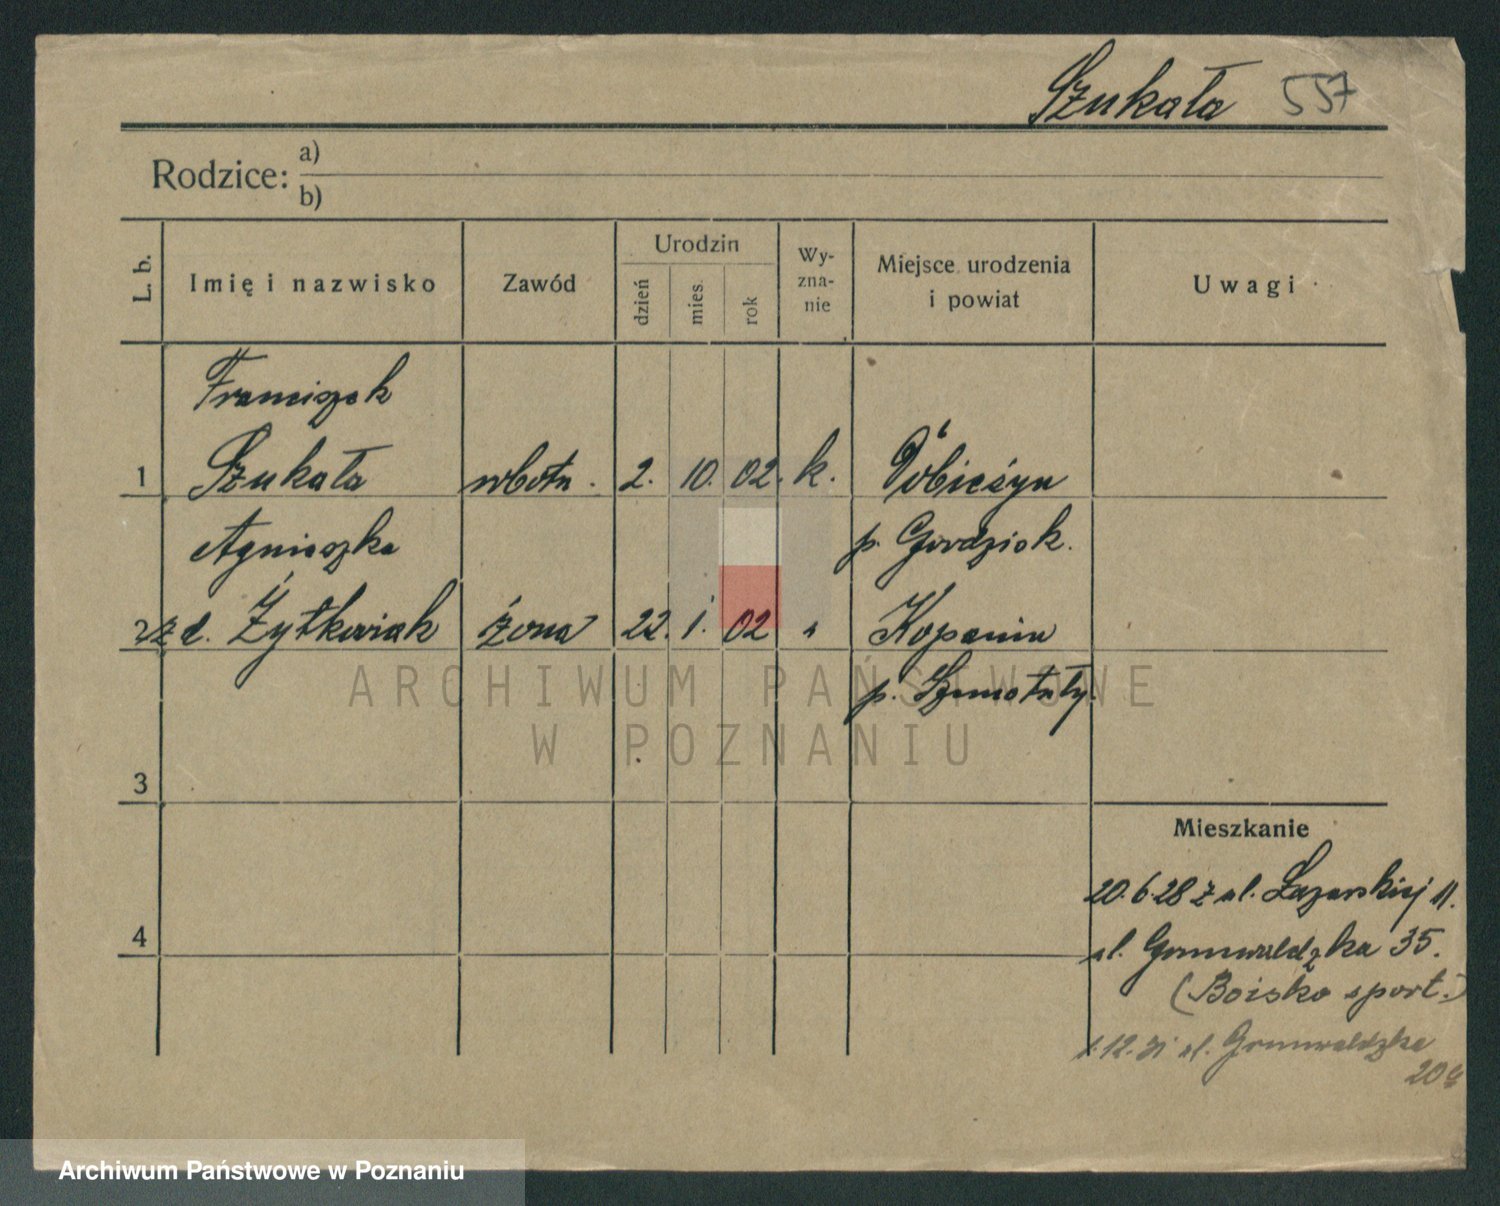 Szukała 557
Rodzice: a)
b)
L. b.
Imię i nazwisko
Zawód
Urodzin
dzień
mies.
rok
Wy-
zna-
nie
Miejsce urodzenia
i powiat
Uwagi
Franciszek
1 Szukała robotn. 2. 10. 02. k. Dobieżyn
Agnieszka p. Grodzisk.
2 z d. Żytkowiak żona 22. 1. 02 " Kopanin
p. Szamotuły.
ARCHIWUM PAŃSTWOWE
W POZNANIU
3
Mieszkanie
20.6.28 z ul. Łazarskiej 11.
4
ul. Grunwaldzka 35.
(Boisko sport.)
1.12.31 ul. Grunwaldzka
20a
Archiwum Państwowe w Poznaniu